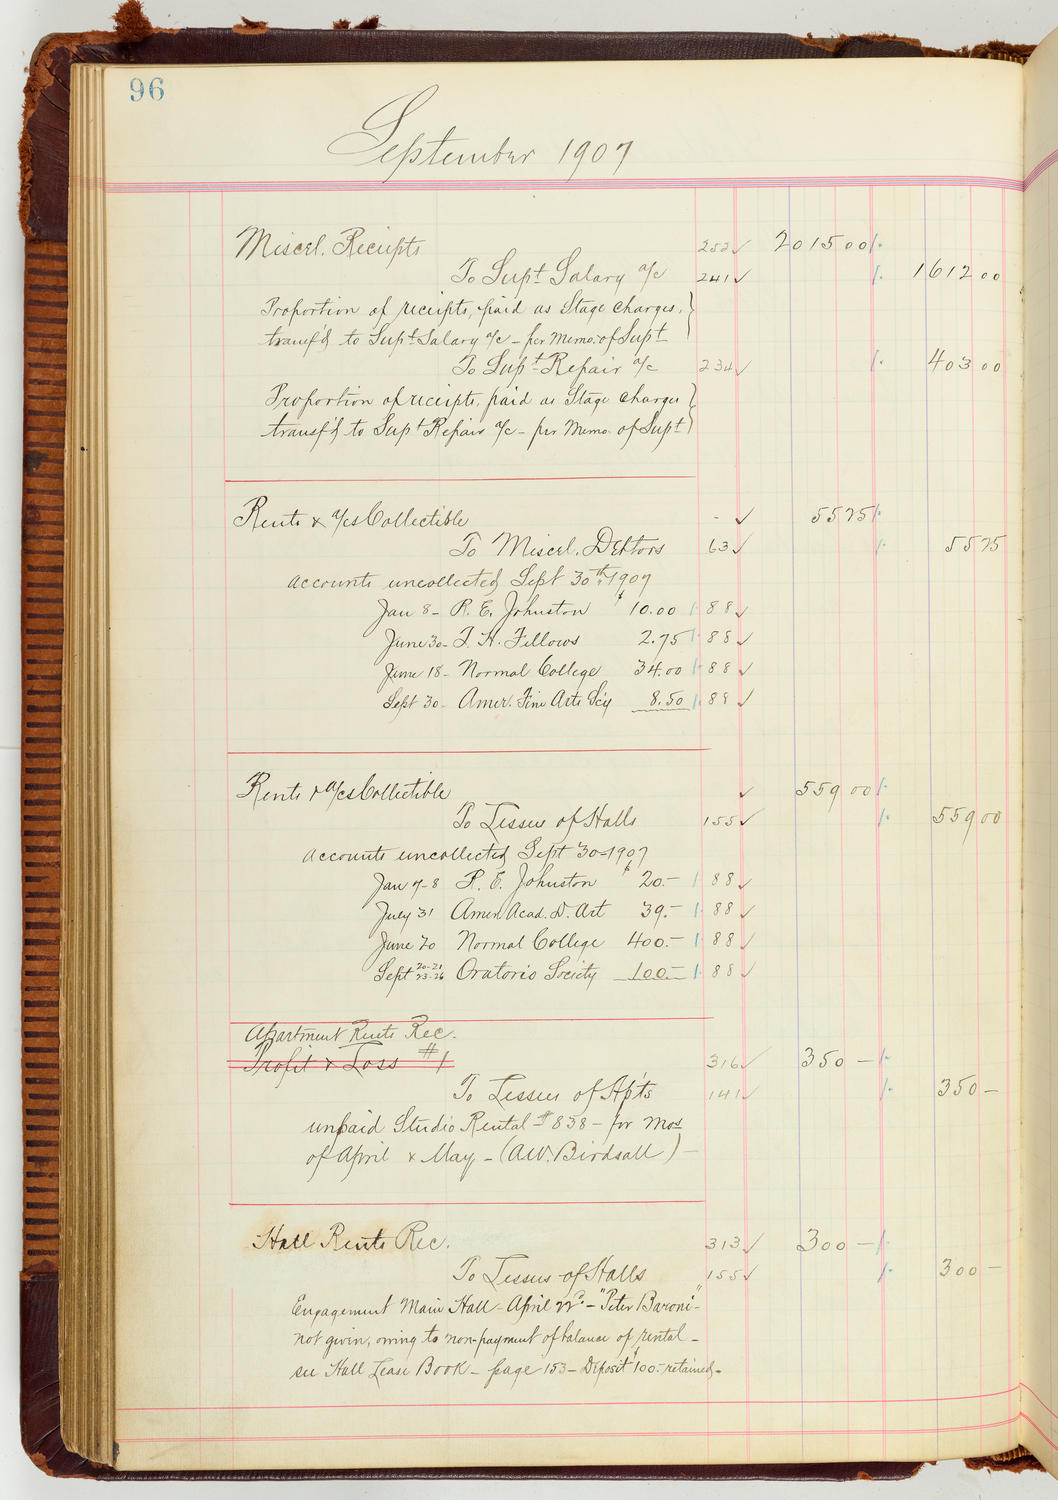 96
September 1907
Miscel. Receipts 252 ✓ 2015 00
To Supt. Salary a/c 241 ✓ 1612 00
Proportion of receipts, paid as Stage Charges,
transf'd to Supt. Salary a/c – per Memo. of Supt
To Supt. Repair a/c 234 ✓ 403 00
Proportion of receipts, paid as Stage Charges
transf'd to Supt Repair a/c – per Memo. of Supt
Rents & a/cs Collectible - ✓ 55 25
To Miscel. Debtors 63 ✓ 55 25
accounts uncollected Sept 30th 1907
Jan 8 – R. E. Johnston $10.00 88 ✓
June 30 – T. H. Fellows 2.75 88 ✓
June 18 – Normal College 34.00 88 ✓
Sept 30 – Amer. Fine Arts S'cy 8.50 88 ✓
Rents & a/cs Collectible ✓ 559 00
To Lessees of Halls 155 ✓ 559 00
accounts uncollected Sept 30–1907
Jan 7-8 R. E. Johnston $20.– 88 ✓
July 31 Amer. Acad. D. Art 39.– 88 ✓
June 20 Normal College 400.– 88 ✓
Sept 20-21 23-26 Oratorio Society 100– 88 ✓
Apartment Rents Rec.
Profit & Loss #1 316 ✓ 350 –
To Lessees of Ap'ts 141 ✓ 350 –
unpaid Studio Rental # 838 – for Mos
of April & May – (A.W. Birdsall) –
Hall Rents Rec. 313 ✓ 300 –
To Lessees of Halls 155 ✓ 300 –
Engagement Main Hall – April 22d. – "Peter Baroni" –
not given, owing to non-payment of balance of rental –
see Hall Lease Book – page 153 – Deposit $100.– retained –